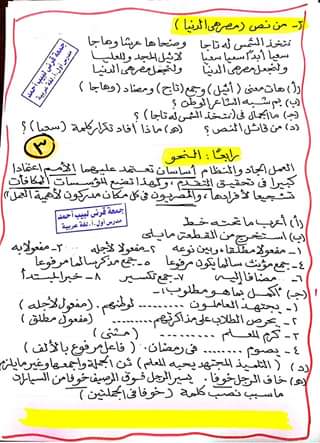 ٢- من نص (مصر هى الدنيا)
تتخذ الشمس له تاجا وضحاها عرشا وهاجا
سعيا أبدا سعيا سعيا لأثيل المجد وللعليا
ولتجعل مصر هى الدنيا ولتجعل مصر هى الدنيا
(أ) هات معنى (أثيل) وجمع (تاج) ومضاد (وهاجا)
(ب) بم شبه الشاعر الوطن؟
(ج) ما الجمال فى (تتخذ الشمس له تاجا)؟
(د) من قائل النص؟ (هـ) ماذا أفاد تكرار كلمة (سعيا)؟
جمعة قرني لبيب أحمد
مدرس أول أ. لغة عربية
٣
رابعًا: النحو
العمل الجاد والنظام أساسان تعتمد عليهما الأمم اعتمادا
كبيرا فى تحقيق التقدم ولهذا تضع المؤسسات المكافآت
تشجيعا لأفرادها والمصريون فى كل مكان مدركون لأهمية العمل"
جمعة قرني لبيب أحمد
مدرس أول أ. لغة عربية
(أ) أعرب ما تحته خط
(ب) استخرج من القطعة مايلى
١- مفعولا مطلقا وبين نوعه ٢- مفعولا لأجله ٣- مفعولا به
٤- جمع مؤنث سالما يكون مرفوعا ٥- جمع مذكر سالما مرفوعا
٦- مضاف إليه ٧- جمع تكسير ٨- خبر المبتدأ
(ج) أكمل بما هو مطلوب:-
١- يجتهد العاملون ......... لوطنهم. (مفعول لأجله)
٢- يحرص الطلاب على مذاكرتهم ......... (مفعول مطلق)
٣- كرم المعلم ......... (مثنى)
٤- يصوم ......... فى رمضان. (فاعل مرفوع بالألف)
(د) (التلميذ المجتهد يحبه المعلم) ثن الجملة واجمعها وغير ما يلزم
(هـ) خاف الرجل خوفا. يسير الرجل فوق الرصيف خوفا من السيارات
ما سبب نصب كلمة (خوفا فى الجملتين)